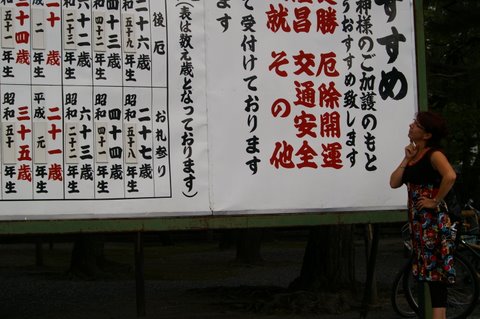 すすめ
神様のご加護のもと
うおすすめ致します
勝 厄除開運
昌 交通安全
就 その他
て受付けております
ます
(表は数え歳となっております)
後厄
二十六歳
昭和五十九年生
十三歳
年生
十二歳
年生
年生
三十四歳
年生
お礼参り
二十七歳
昭和五十八年生
四十四歳
昭和四十一年生
六十三歳
昭和二十二年生
二十一歳
平成元年生
三十五歳
昭和五十年生